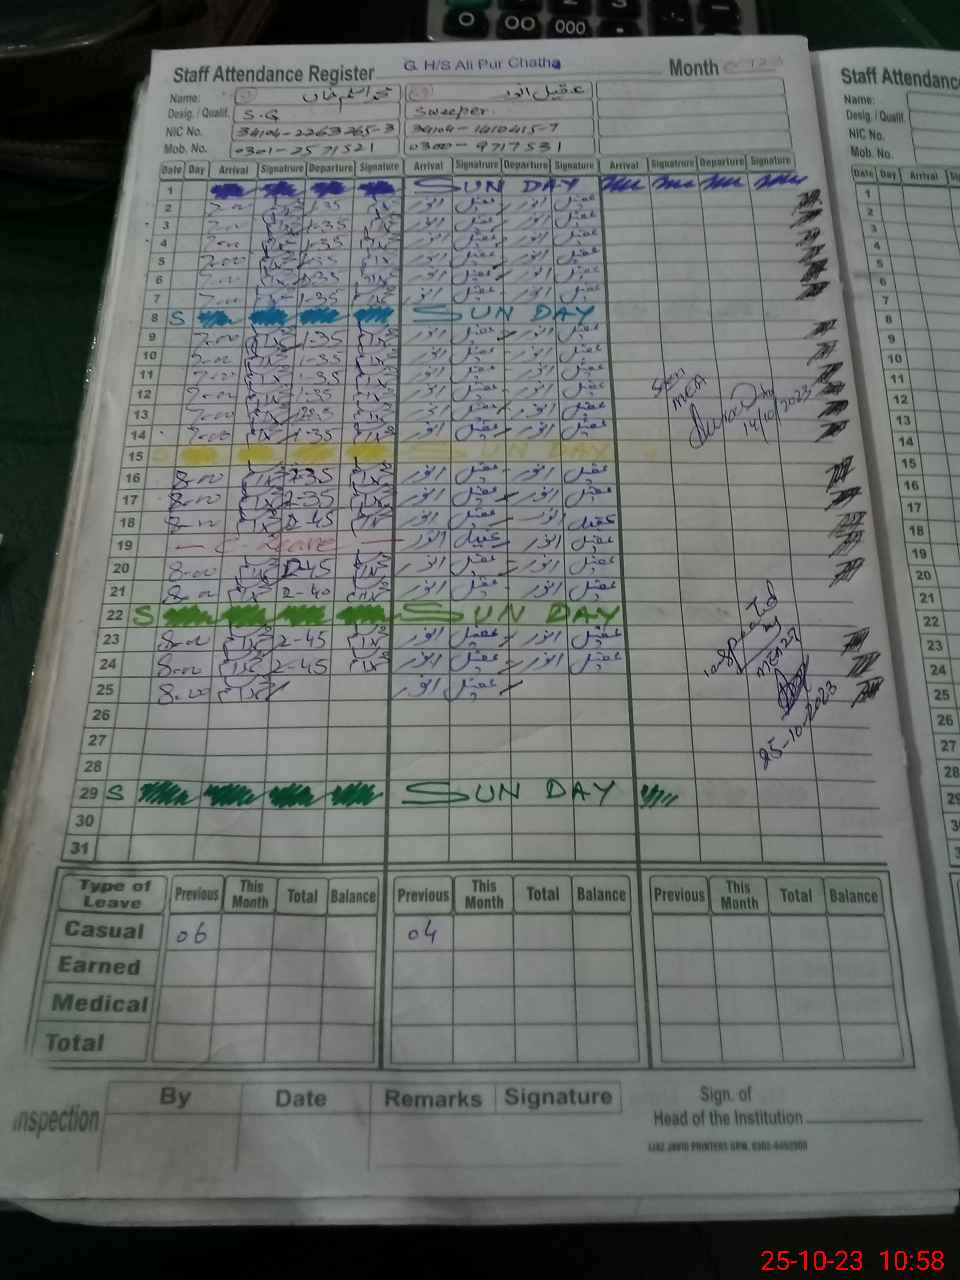 0 00 000
Staff Attendance Register G. H/S Ali Pur Chatha Month
Name: عقیل انور
Desig. / Qualif. S.G Sweeper.
NIC No. 34104-2263265-3 34104-1410415-7
Mob. No. 0301-2571521 0300-9717531
Date Day Arrival Signature Departure Signature Arrival Signatrure Departure Signature Arrival Signatrure Departure Signature
1 SUN DAY
2 7-00 1-35 انور عقیل انور عقیل
3 7-00 1-35 انور عقیل انور عقیل
4 7-00 1-35 انور عقیل انور عقیل
5 7-00 1-35 انور عقیل انور عقیل
6 7-00 1-35 انور عقیل انور عقیل
7 7-00 1-35 انور عقیل انور عقیل
8 S SUN DAY
9 7-00 1-35 انور عقیل انور عقیل
10 7-00 1-35 انور عقیل انور عقیل
11 7-00 1-35 انور عقیل انور عقیل
12 7-00 1-35 انور عقیل انور عقیل
13 7-00 انور عقیل انور عقیل
14 7-00 1-35 انور عقیل انور عقیل
MEA
14/10/2023
15 SUN DAY
16 8-00 2-35 انور عقیل انور عقیل
17 8-00 2-35 انور عقیل انور عقیل
18 8-00 2-45 انور عقیل انور عقیل
19 C-Leave انور عقیل انور عقیل
20 8-00 2-45 انور عقیل انور عقیل
21 8-00 2-40 انور عقیل انور عقیل
22 S SUN DAY
23 8-00 2-45 انور عقیل انور عقیل
24 8-00 2-45 انور عقیل انور عقیل
25 8-00 انور عقیل
inspected
by
MEA 27
25-10-2023
26
27
28
29 S SUN DAY
30
31
Type of Leave Previous This Month Total Balance Previous This Month Total Balance Previous This Month Total Balance
Casual 06 04
Earned
Medical
Total
Inspection By Date Remarks Signature
Sign. of
Head of the Institution
Staff Attendanc
Name:
Desig. / Qualif.
NIC No.
Mob. No.
Date Day Arrival
1
2
3
4
5
6
7
8
9
10
11
12
13
14
15
16
17
18
19
20
21
22
23
24
25
26
27
28
29
30
25-10-23 10:58